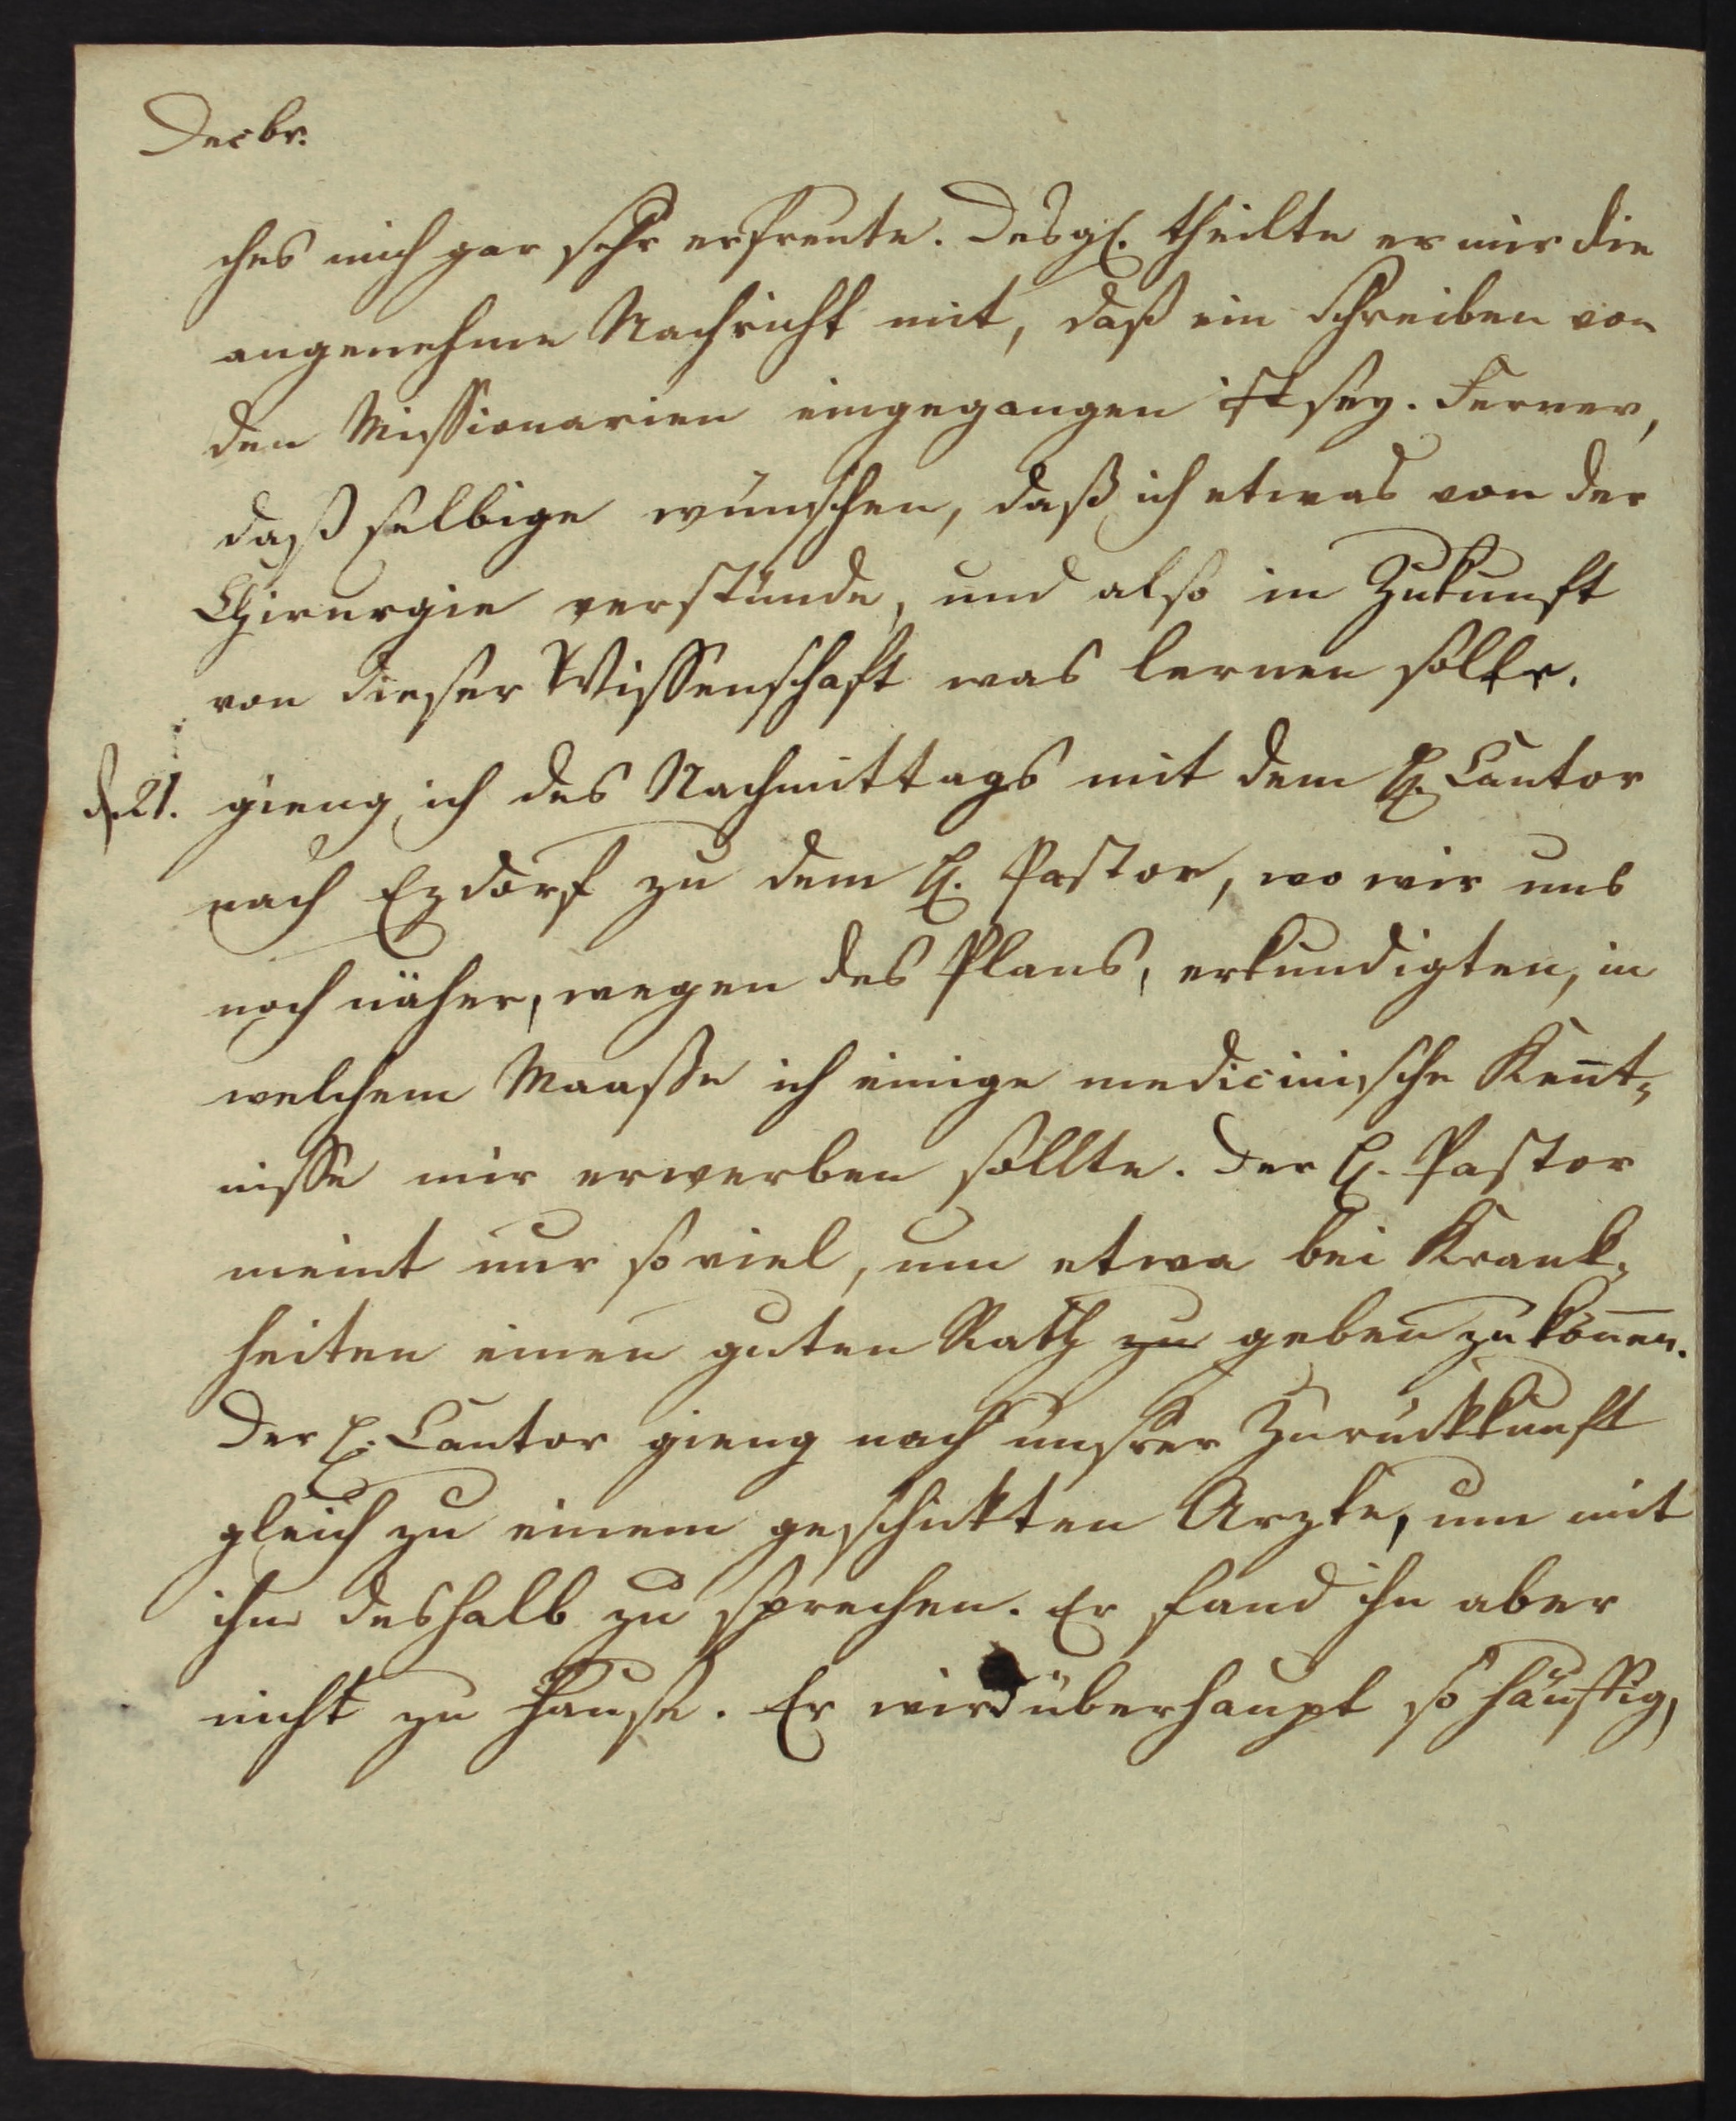 Decbr.
ches mich gar sehr erfreute. Desgl. theilte er mir die
angenehme Nachricht mit, daß ein Schreiben von
den Missionarien eingegangen ist sey. Ferner,
daß selbige wünschen, daß ich etwas von der
Chirurgie verstünde, und also in Zukunft
von dieser Wissenschaft was lernen sollte.
d. 21. gieng ich des Nachmittags mit dem H. Cantor
nach Ezdorf zu dem H. Pastor, wo wir uns
noch näher, wegen des Plans, erkundigten, in
welchem Maaße ich einige medicinische Kennt-
nisse mir erwerben sollte. Der H. Pastor
meint nur so viel, um etwa bei Krank-
heiten einen guten Rath zu geben zu können.
Der H. Cantor gieng nach unsrer Zurückkunft
gleich zu einem geschickten Arzte, um mit
ihm deshalb zu sprechen. Er fand ihn aber
nicht zu Hause. Er wird überhaupt so häuffig,